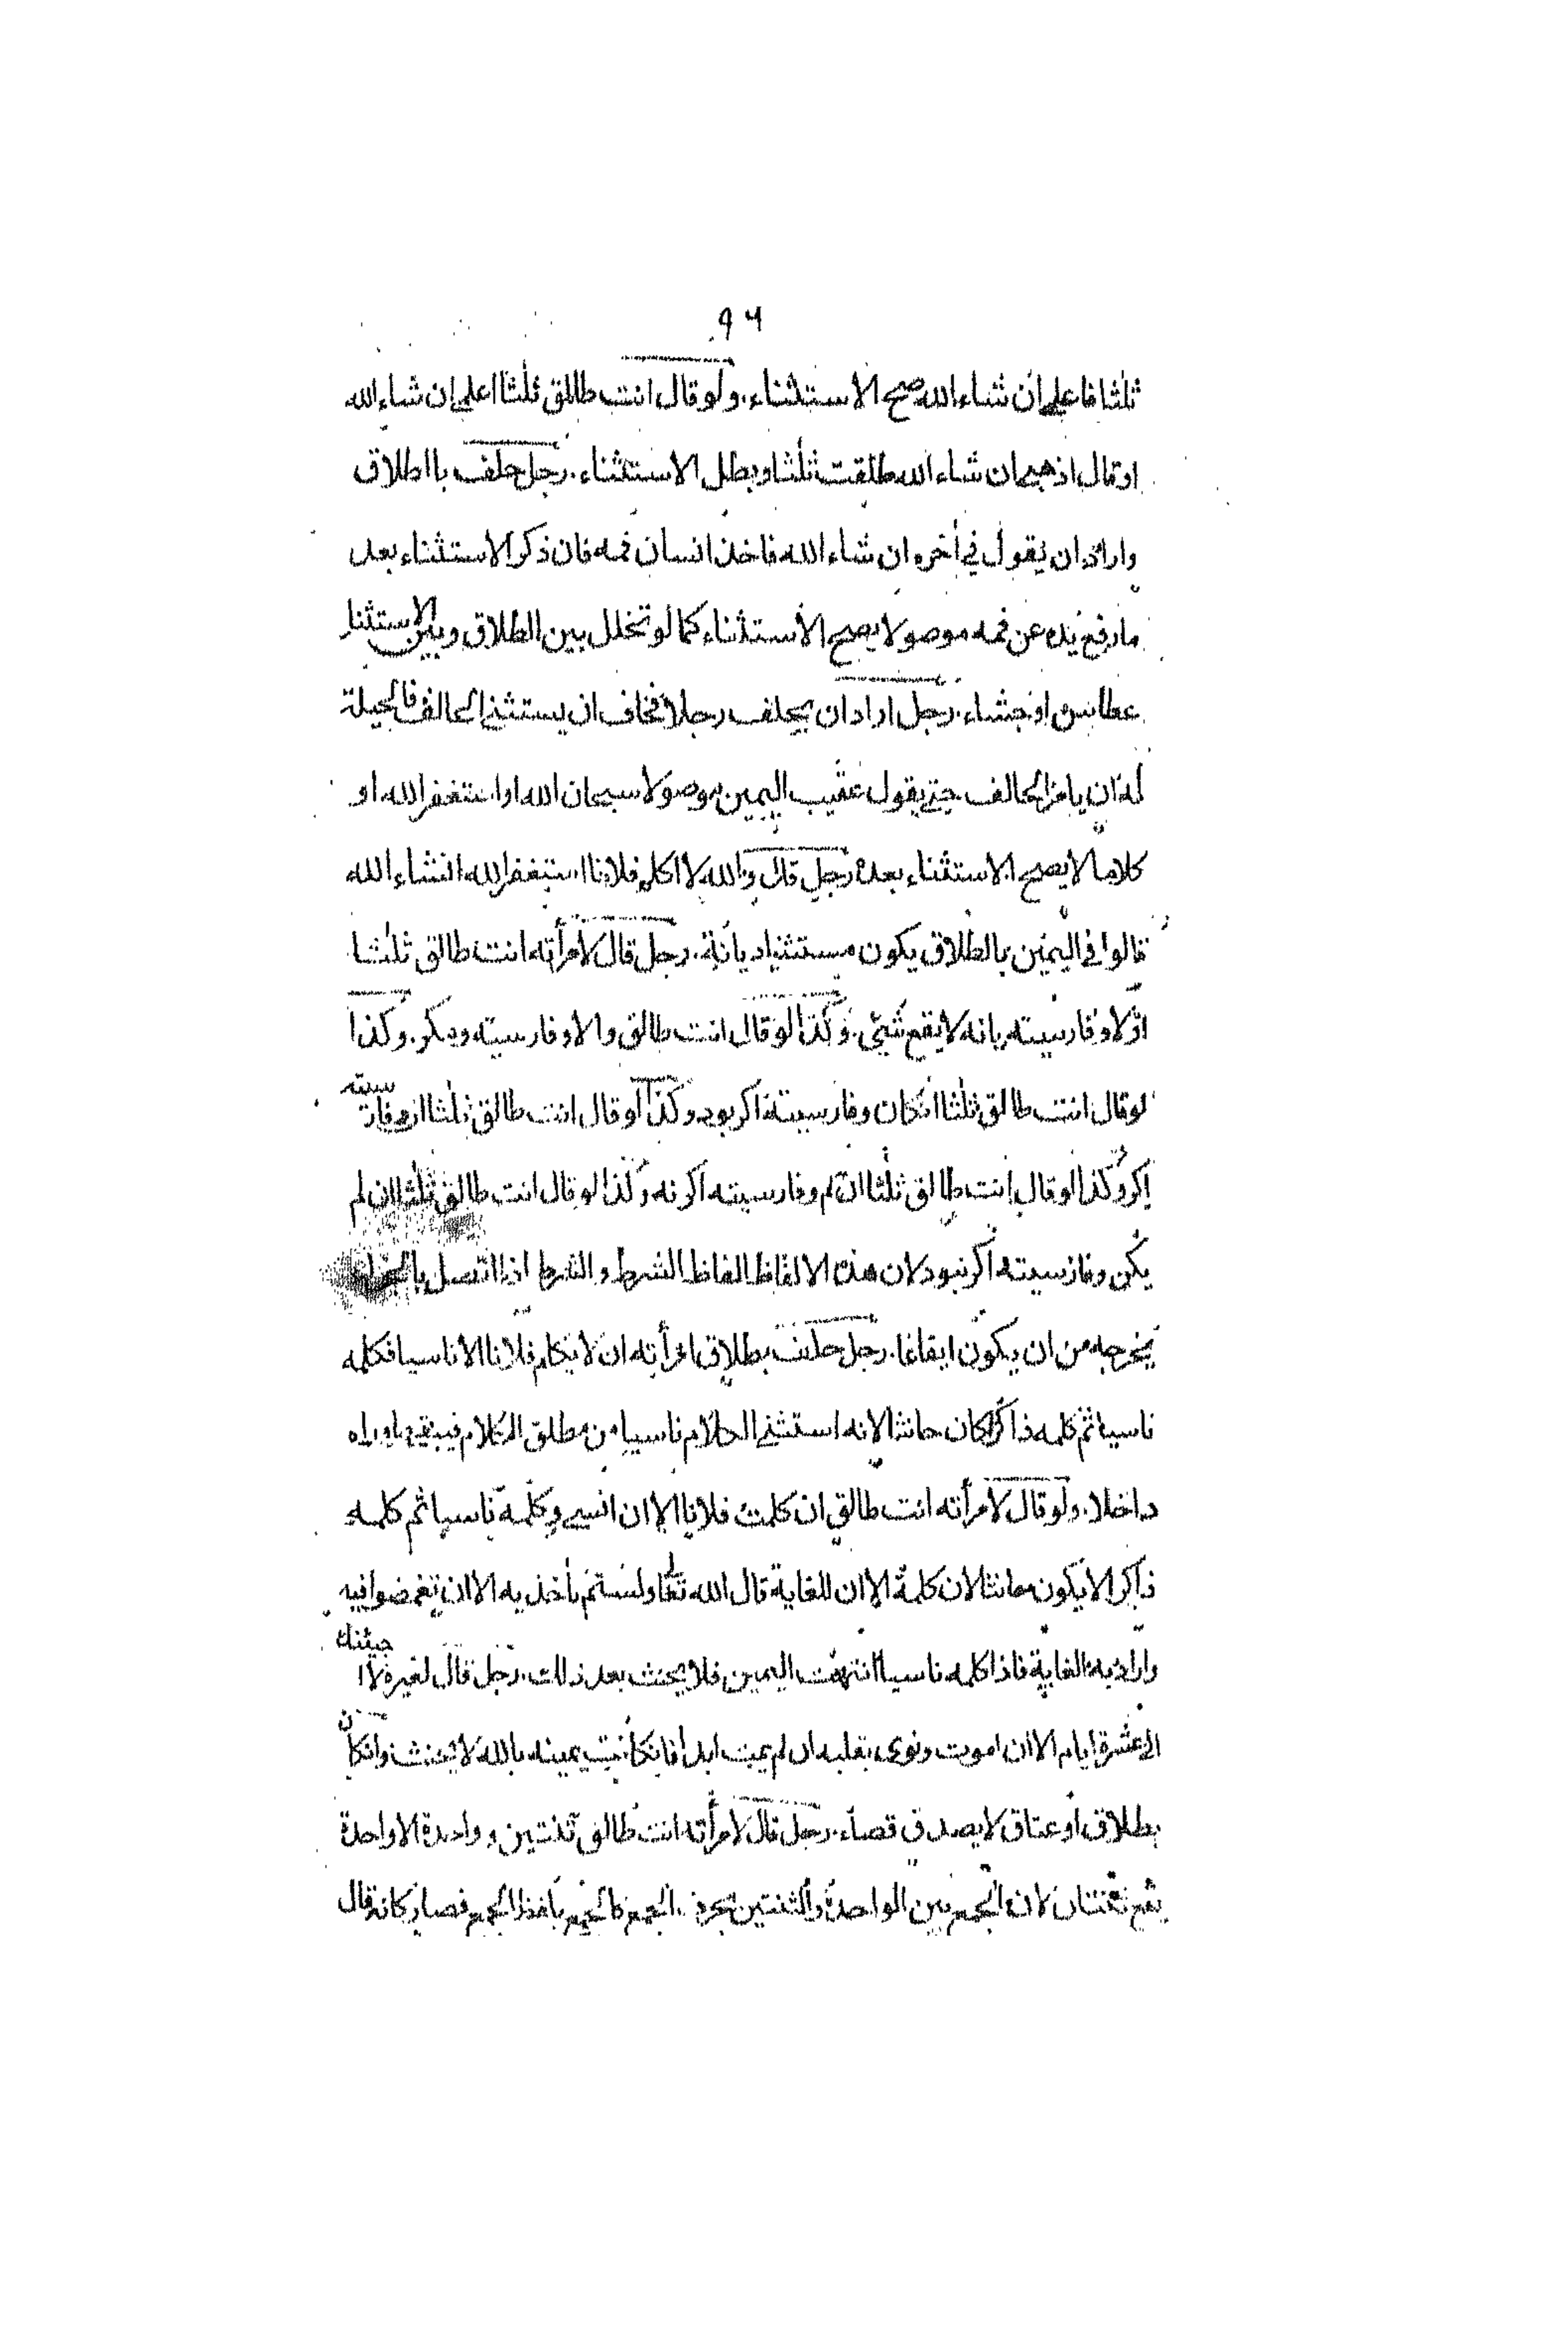 ٩٦
ثلثا فاعلمى ان شاء الله صح الاستثناء. ولو قال انت طالق ثلثا اعلمى ان شاء الله
او قال اذهبى ان شاء الله طلقت ثلثا وبطل الاستثناء. رجل حلف بالطلاق
واراد ان يقول فى أخره ان شاء الله فاخذ انسان فمه فان ذكر الاستثناء بعد
ما رفع يده عن فمه موصولا يصح الاستثناء كما لو تخلل بين الطلاق وبين الاستثناء
عطاس او جشاء. رجل اراد ان يحلف رجلا فخاف ان يستثنى الحالف فالحيلة
له ان يامر الحالف حتى يقول عقيب اليمين موصولا سبحان الله او استغفر الله او
كلاما لا يصح الاستثناء بعده رجل قال والله لا اكلم فلانا استغفر الله انشاء الله
قالوا فى اليمين بالطلاق يكون مستثنيا ديانة. رجل قال لامرأته انت طالق ثلثا
اولا وفارسيته يانه لا يقع شئ. وكذا لو قال انت طالق والا وفارسيته ومكر. وكذا
لو قال انت طالق ثلثا انكان وفارسيته اكر بود وكذا لو قال انت طالق ثلثا ان فارسيته
اكر وكذا لو قال انت طالق ثلثا ان لم وفارسيته اكر نه وكذا لو قال انت طالق ثلثا ان لم
يكن وفارسيته اكر نبود لان هذه الالفاظ الفاظ الشرط والشرط اذا اتصل
يخرجه من ان يكون ايقاعا. رجل حلف بطلاق امرأته ان لا يكلم فلانا الا ناسيا فكلمه
ناسيا ثم كلمه ذاكرا كان حانثا لانه استثنى الكلام ناسيا من مطلق الكلام فيبقى ما وراه
داخلا. ولو قال لامرأته انت طالق ان كلمت فلانا الا ان انسى وكلمه ناسيا ثم كلمه
ذاكرا لا يكون حانثا لان كلمة الا ان للغاية قال الله تعا ولستم بأخذيه الا ان تغمضوا فيه
واراد به الغاية فاذا كلمه ناسيا انتهت اليمين فلا يحنث بعد ذلك. رجل قال لغيره لا اجيئنك
الى عشرة ايام الا ان اموت ونوى بقلبه ان لم يمت ابدا فانكانت يمينه بالله لا يحنث وانكان
بطلاق او عتاق لا يصدق قضاء. رجل قال لامرأته انت طالق ثنتين وواحدة الا واحدة
يقع ثنتان لان الجمع بين الواحدة والثنتين بحرف الجمع كالجمع بلفظ الجمع فصار كانه قال